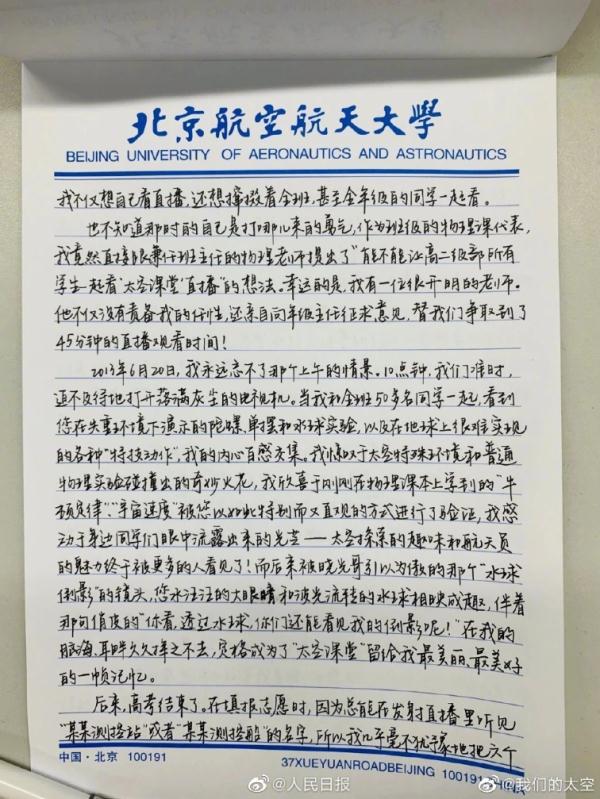 北京航空航天大學
BEIJING UNIVERSITY OF AERONAUTICS AND ASTRONAUTICS
我不仅想自己看直播,还想撺掇着全班,甚至全年级的同学一起看。
也不知道那时的自己是打哪儿来的勇气,作为班级的物理课代表,
我竟然直接跟兼任班主任的物理老师提出了“能不能让高二级部所有
学生一起看‘太空课堂’直播”的想法。幸运的是,我有一位很开明的老师。
他不仅没有责备我的任性,还亲自向年级主任征求意见,替我们争取到了
45分钟的直播观看时间!
2013年6月20日,我永远忘不了那个上午的情景。10点钟,我们准时、
迫不及待地打开落满灰尘的电视机。当我和全班50多名同学一起,看到
您在失重环境下演示的陀螺、单摆和水球实验,以及在地球上很难实现
的各种“特技动作”,我的内心百感交集。我惊叹于太空特殊环境和普通
物理实验碰撞出的奇妙火花,我欣喜于刚刚在物理课本上学到的“牛
顿定律”、“宇宙速度”被您以如此特别而又直观的方式进行了验证,我感
动于身边同学们眼中流露出来的光芒——太空探索的趣味和航天员
的魅力终于被更多的人看见了!而后来被晓光哥引以为傲的那个“水球
倒影”的镜头,您水汪汪的大眼睛和波光流转的水球相映成趣,伴着
那句俏皮的“你看,透过水球,你们还能看见我的倒影呢!”在我的
脑海、耳畔久久挥之不去,定格成为了“太空课堂”留给我最美丽、最美好
的一帧记忆。
后来,高考结束了。在填报志愿时,因为总能在发射直播里听见
“某某测控站”或者“某某测控船”的名字,所以我几乎毫不犹豫地把这个
中国·北京 100191
37XUEYUANROADBEIJING 100191
@人民日报
@我们的太空